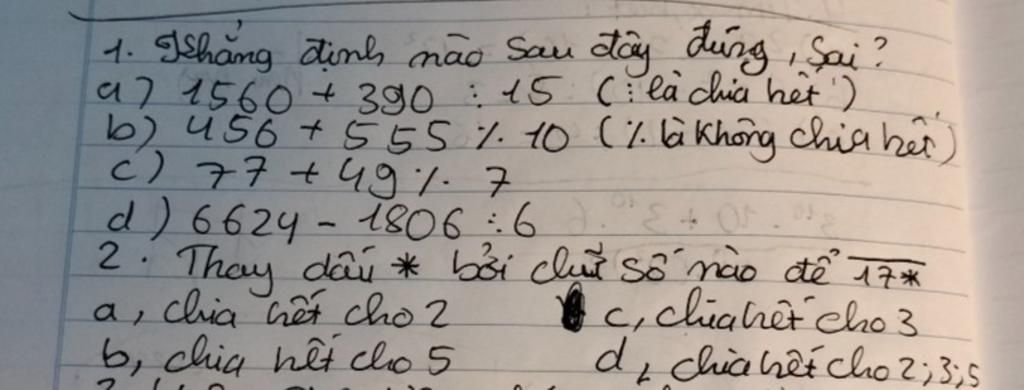 1. Khẳng định nào sau đây đúng, Sai?
a) 1560 + 390 ⋮ 15 (⋮ là chia hết)
b) 456 + 555 % 10 (% là không chia hết)
c) 77 + 49 % 7
d) 6624 - 1806 ⋮ 6
2. Thay dấu * bởi chữ số nào để 17*
a, chia hết cho 2 c, chia hết cho 3
b, chia hết cho 5 d, chia hết cho 2;3;5